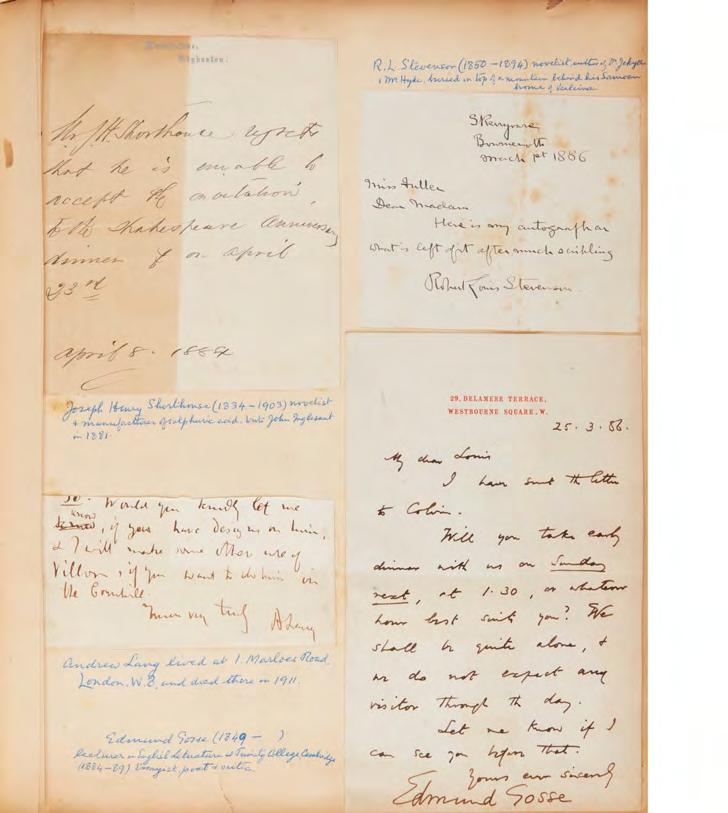 Lansdowne,
Edgbaston.
Mr. J. H. Shorthouse regrets
that he is unable to
accept the invitation
to the Shakespeare Anniversary
dinner on April
23rd
April 8. 1884
Joseph Henry Shorthouse (1834–1903) novelist
+ manufacturer of sulphuric acid. Wrote John Inglesant
in 1881
so. Would you kindly let me
know, if you have designs on him,
& I will make some other use of
Villon, if you want to do him in
the Cornhill.
Yours very truly
A Lang
Andrew Lang lived at 1. Marloes Road,
London, W.8, and died there in 1911.
Edmund Gosse (1849 – )
lecturer in English Literature at Trinity College Cambridge
(1884–89) Essayist, poet & critic.
R. L. Stevenson (1850–1894) novelist, author of Dr Jekyll
& Mr Hyde, buried on top of a mountain behind his Samoan
home of Vailima
Skerryvore
Bournemouth
March 1st 1886
Miss Fuller
Dear Madam
Here is my autograph or
what is left of it after much scribbling
Robert Louis Stevenson.
29, DELAMERE TERRACE,
WESTBOURNE SQUARE, W.
25. 3. 86.
My dear Louis
I have sent the letter
to Colvin.
Will you take early
dinner with us on Sunday
next, at 1.30, or whatever
hour best suits you? We
shall be quite alone, &
we do not expect any
visitor through the day.
Let me know if I
can see you before that.
Yours ever sincerely
Edmund Gosse